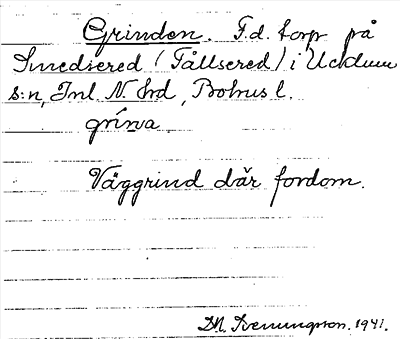 Grinden. F.d. torp på
Smedsered (Fällsered) i Ucklum
s:n, Inl. N. hrd, Bohus l.
grı̄na
Väggrind där fordom.
M. Svenungsson. 1941.